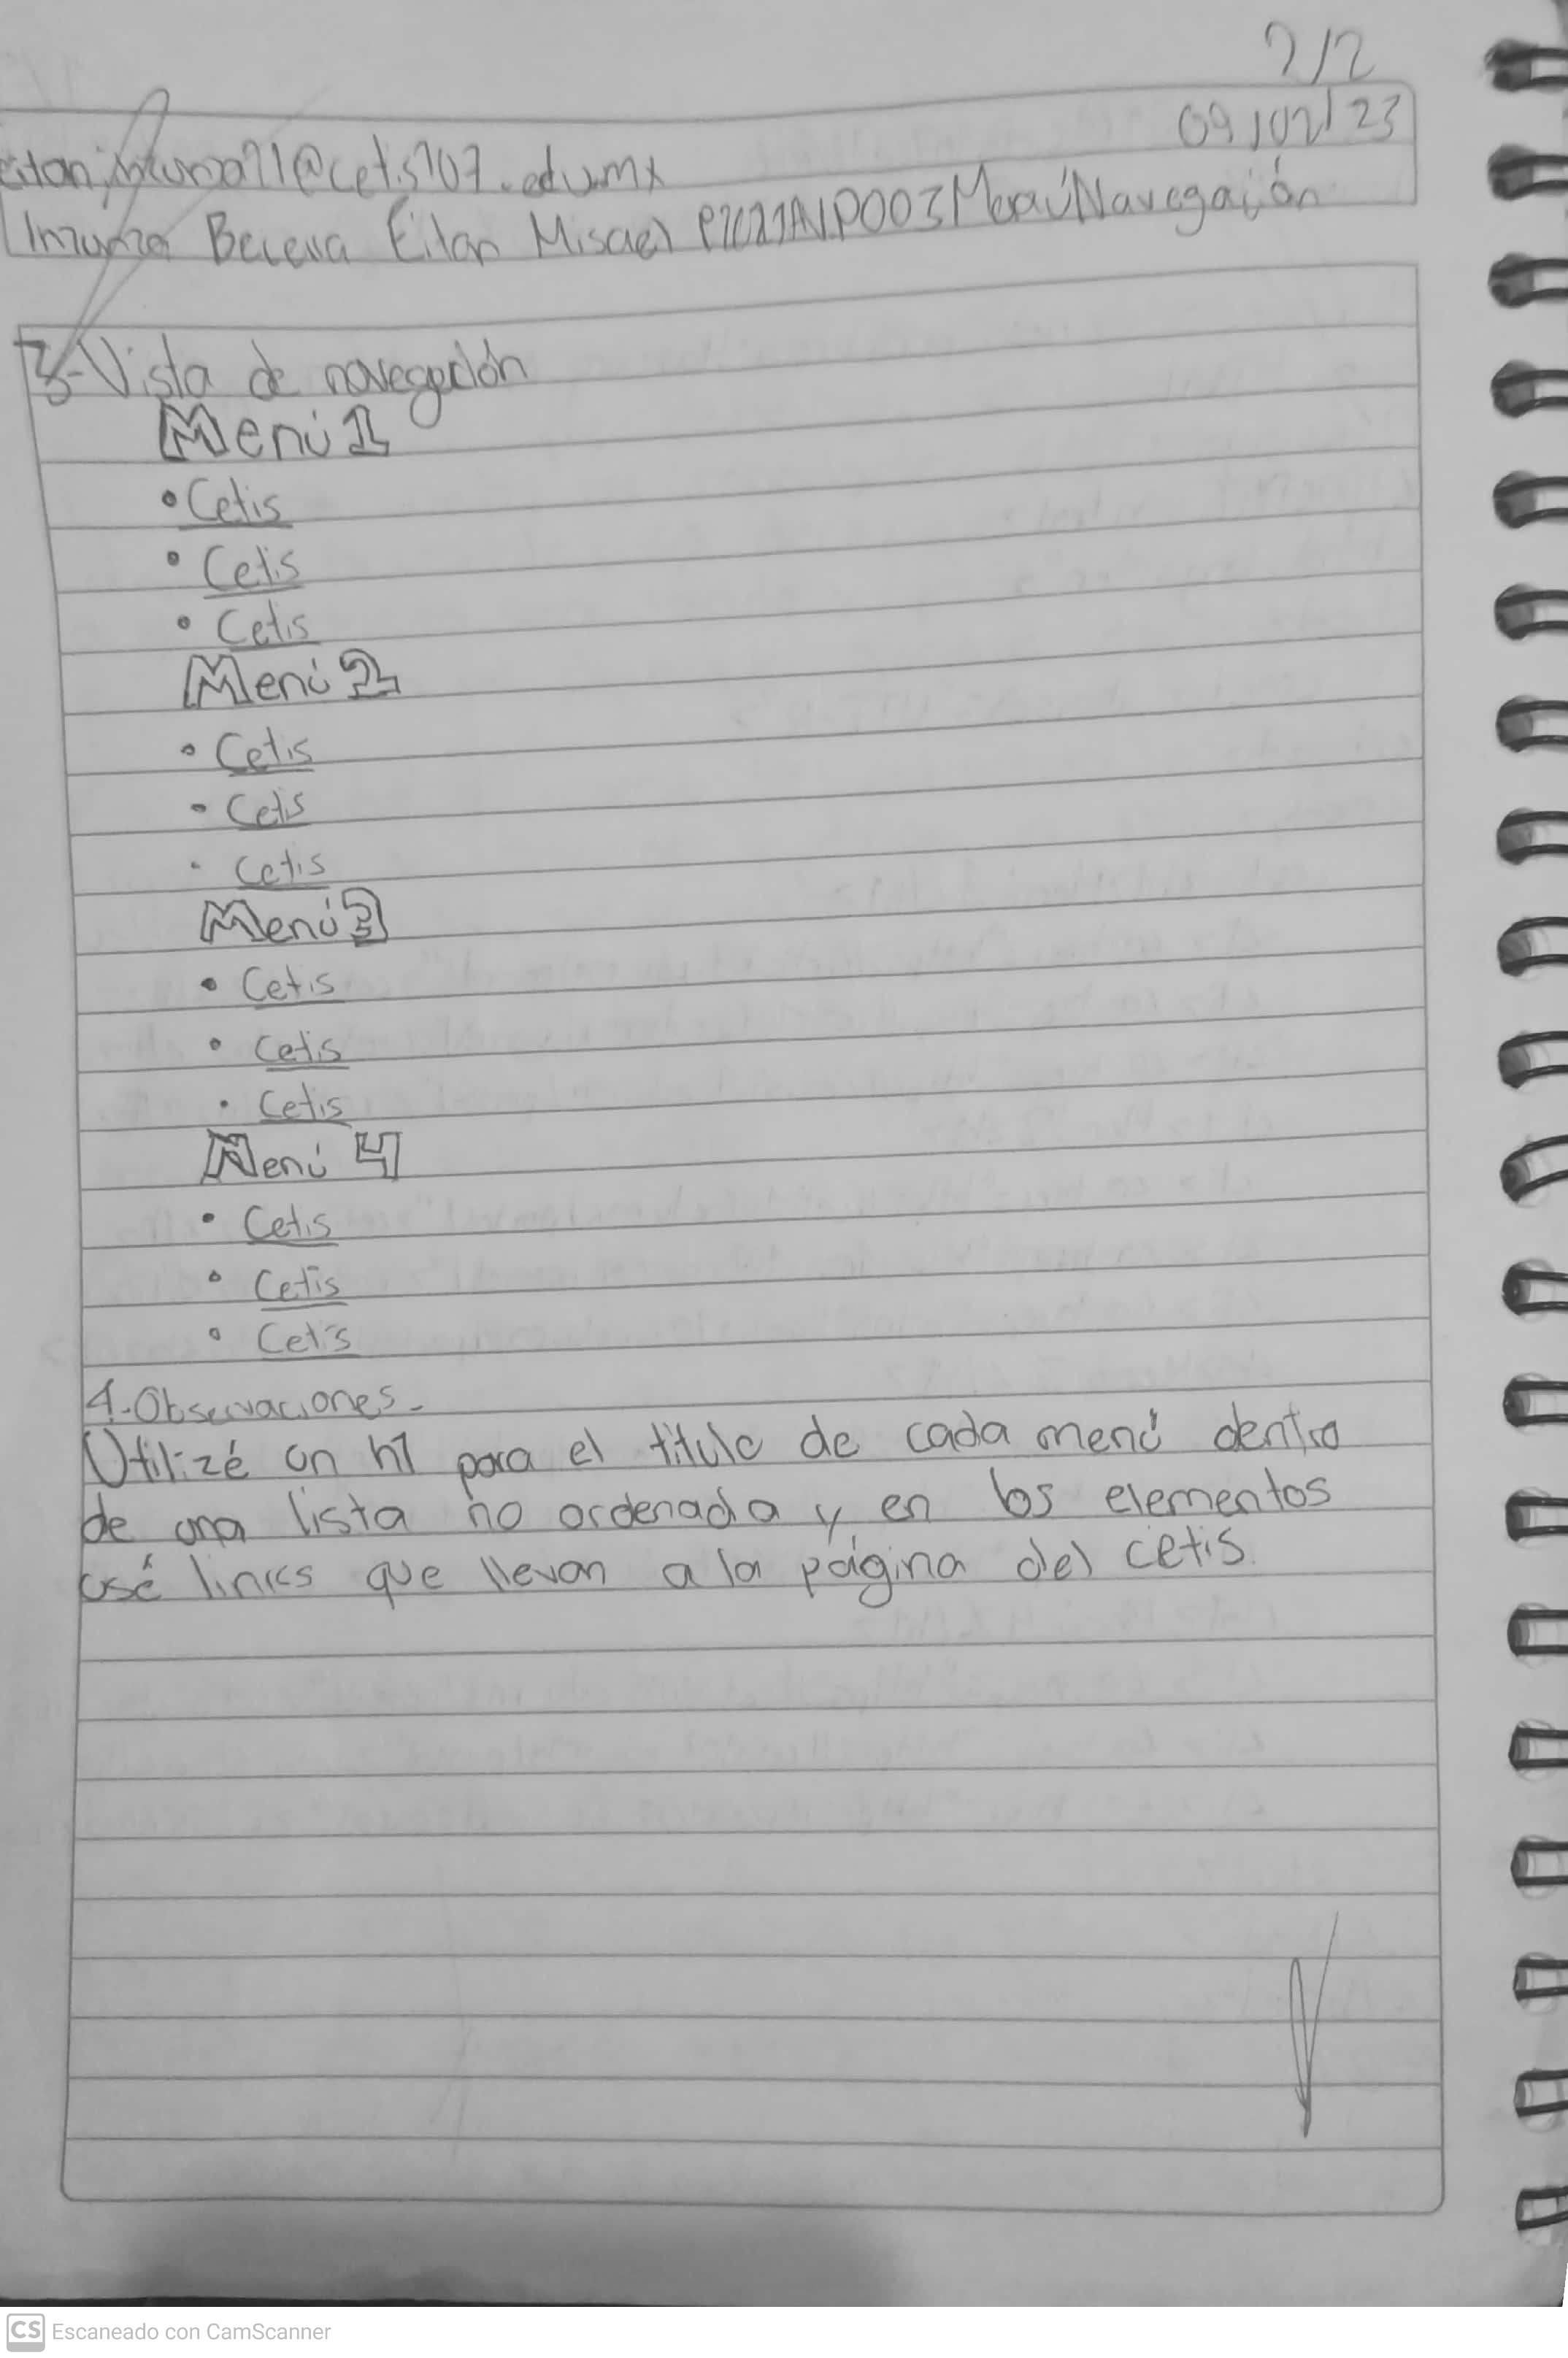 2/2
09/02/23
eitan.inzunza21@cetis107.edu.mx
Inzunza Becerra Eitan Misael P2021AVP003MenúNavegación
3-Vista de navegación
Menú 1
• Cetis
• Cetis
• Cetis
Menú 2
• Cetis
• Cetis
• Cetis
Menú 3
• Cetis
• Cetis
• Cetis
Menú 4
• Cetis
• Cetis
• Cetis
4-Observaciones-
Utilizé un h1 para el titulo de cada menú dentro
de una lista no ordenada y en los elementos
usé links que llevan a la página del cetis.
CS Escaneado con CamScanner